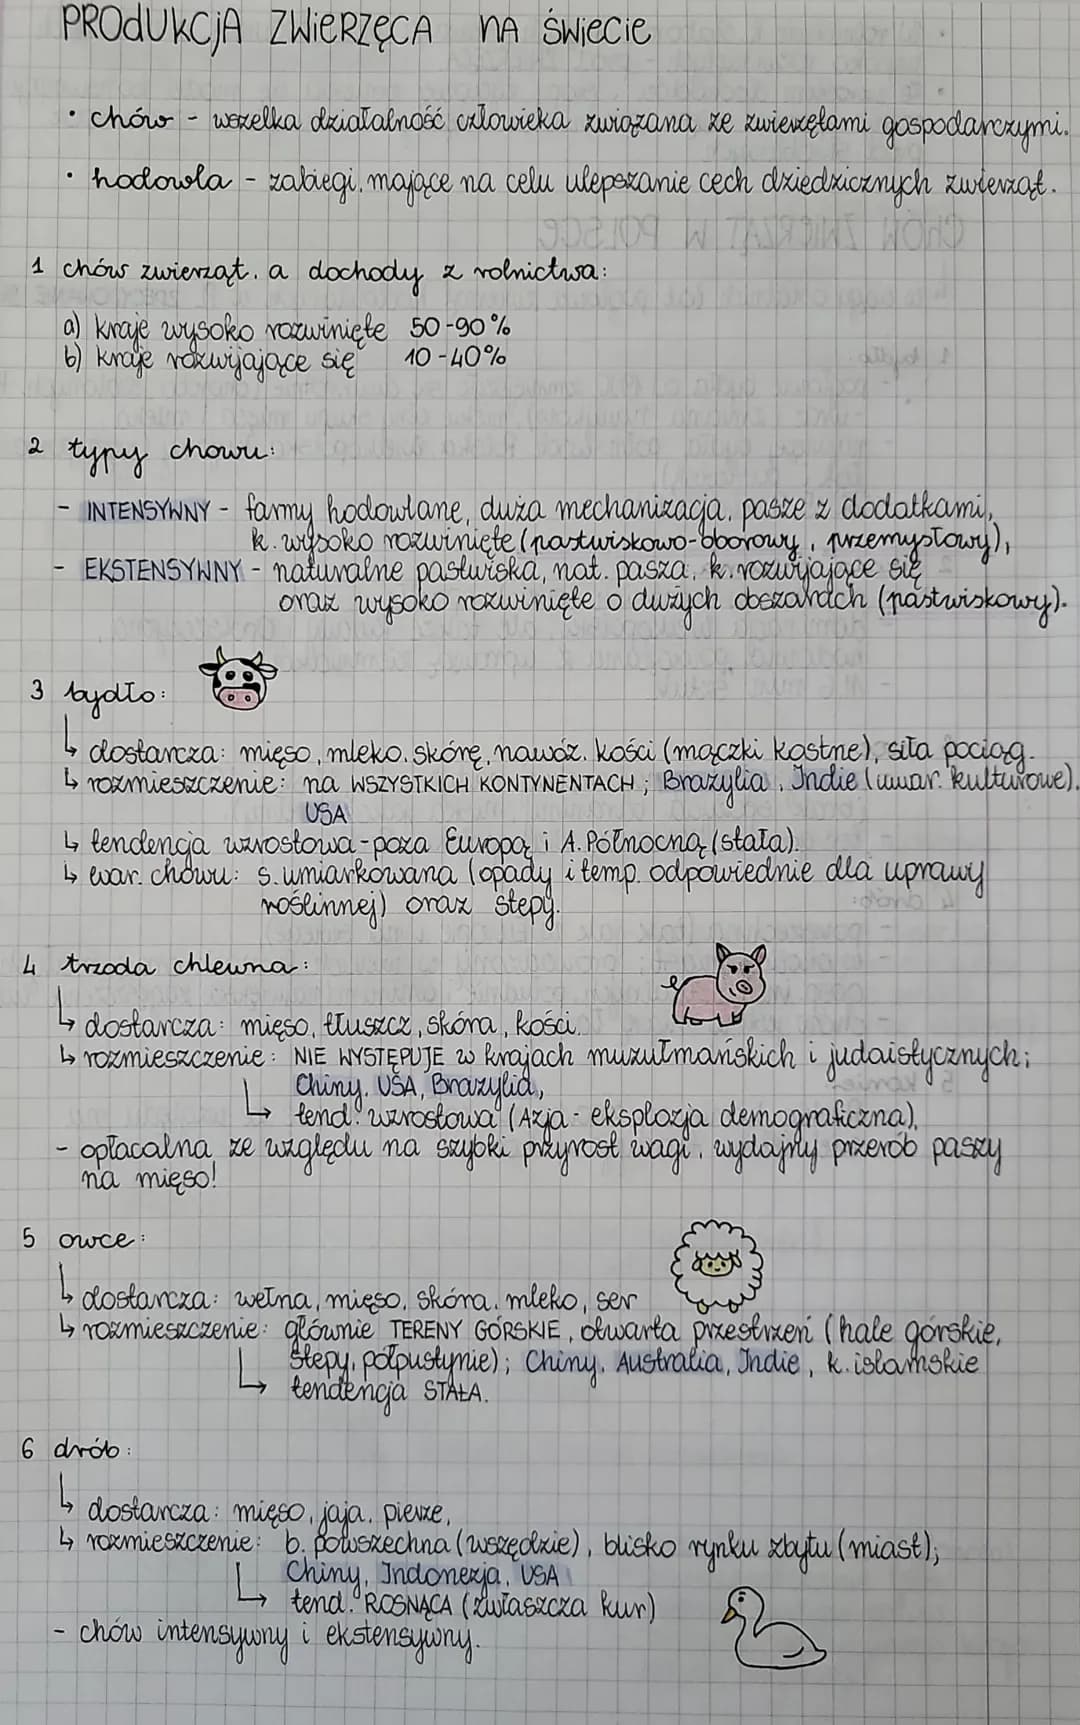 PRODUKCJA ZWIERZĘCA NA ŚWIECIE
• chów - wszelka działalność człowieka związana ze zwierzętami gospodarczymi.
• hodowla - zabiegi, mające na celu ulepszanie cech dziedzicznych zwierząt.
1 chów zwierząt, a dochody z rolnictwa:
a) kraje wysoko rozwinięte 50-90%
b) kraje rozwijające się 10-40%
2 typy chowu:
- INTENSYWNY - farmy hodowlane, duża mechanizacja, pasze z dodatkami,
k. wysoko rozwinięte (pastwiskowo-oborowy, przemysłowy),
- EKSTENSYWNY - naturalne pastwiska, nat. pasza, k. rozwijające się
oraz wysoko rozwinięte o dużych obszarach (pastwiskowy).
3 bydło:
↳ dostarcza: mięso, mleko, skórę, nawóz, kości (mączki kostne), siła pociąg.
↳ rozmieszczenie: na WSZYSTKICH KONTYNENTACH; Brazylia, Indie (uwar. kulturowe).
USA
↳ tendencja wzrostowa - poza Europą i A. Północną (stała).
↳ war. chowu: s. umiarkowana (opady i temp. odpowiednie dla uprawy
roślinnej) oraz stepy.
4 trzoda chlewna:
↳ dostarcza: mięso, tłuszcz, skóra, kości.
↳ rozmieszczenie: NIE WYSTĘPUJE w krajach muzułmańskich i judaistycznych;
Chiny, USA, Brazylia,
↳ tend. wzrostowa (Azja - eksplozja demograficzna),
- opłacalna ze względu na szybki przyrost wagi, wydajny przerób paszy
na mięso!
5 owce:
↳ dostarcza: wełna, mięso, skóra, mleko, ser
↳ rozmieszczenie: głównie TERENY GÓRSKIE, otwarta przestrzeń (hale górskie,
stepy, półpustynie); Chiny, Australia, Indie, k. islamskie
↳ tendencja STAŁA.
6 drób:
↳ dostarcza: mięso, jaja, pierze,
↳ rozmieszczenie: b. powszechna (wszędzie), blisko rynku zbytu (miast);
Chiny, Indonezja, USA
↳ tend. ROSNĄCA (zwłaszcza kur)
- chów intensywny i ekstensywny.